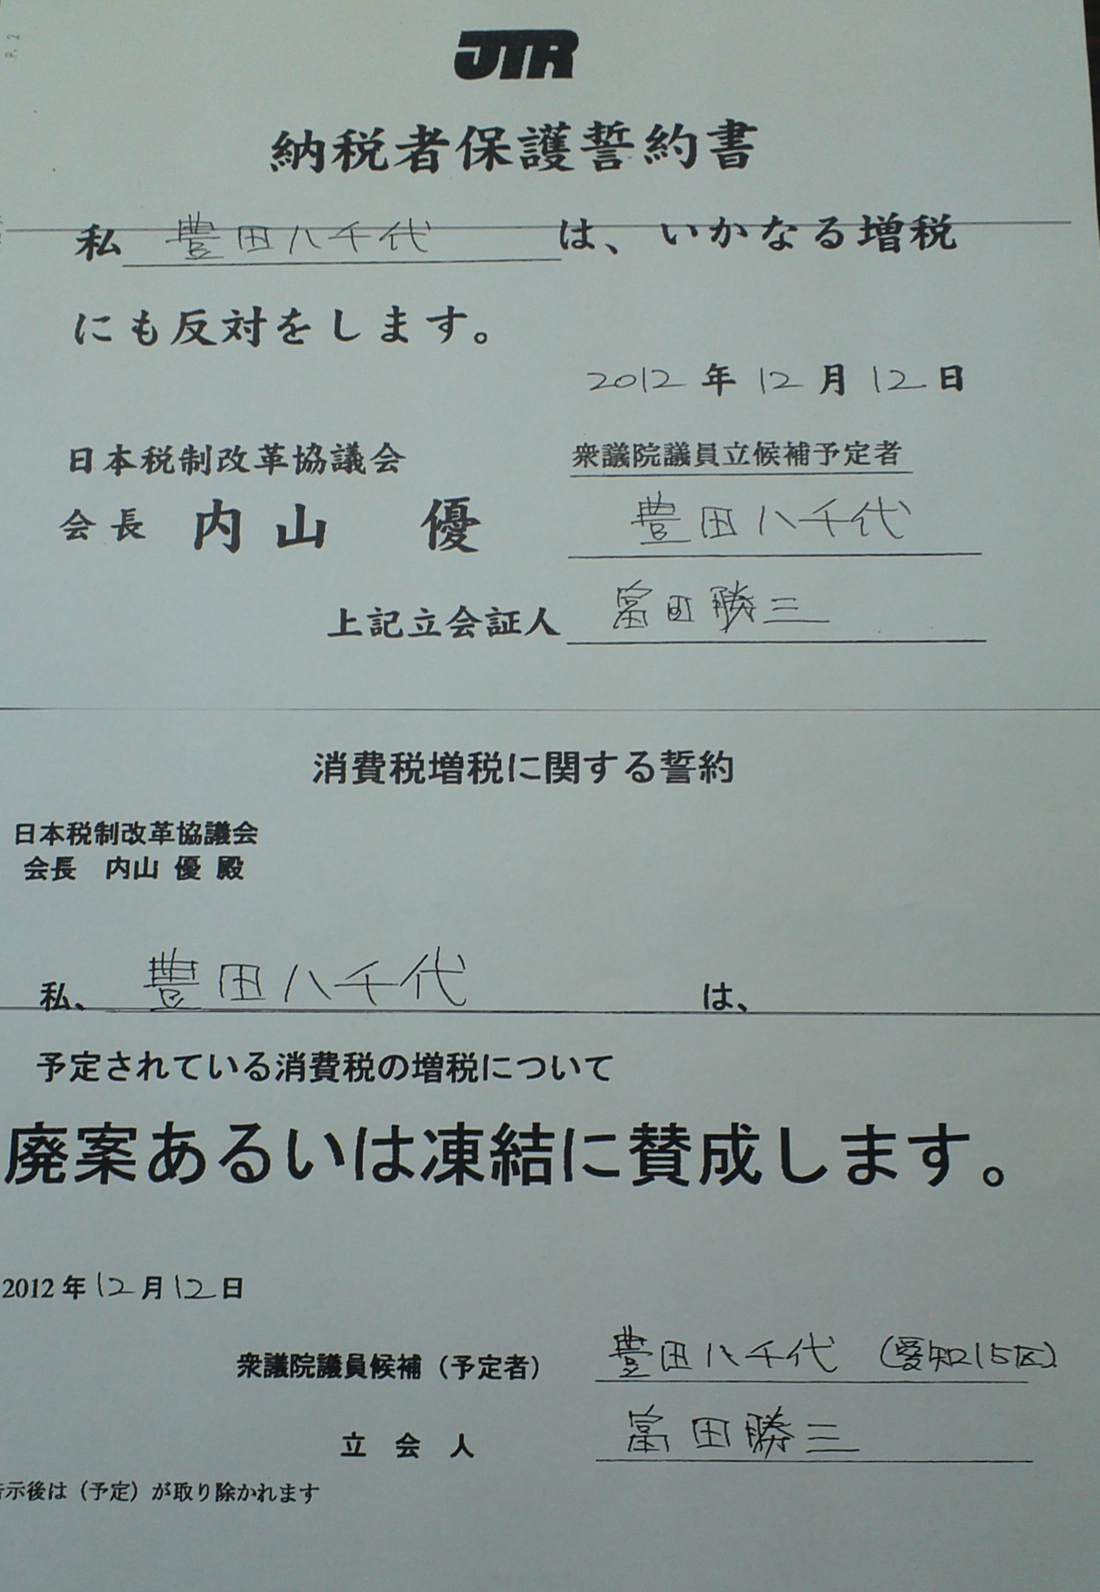 P. 2
JTR
納税者保護誓約書
私 豊田八千代 は、いかなる増税
にも反対をします。
2012 年 12 月 12 日
日本税制改革協議会
会長 内山 優
衆議院議員立候補予定者
豊田八千代
上記立会証人 富田勝三
消費税増税に関する誓約
日本税制改革協議会
会長 内山 優 殿
私、 豊田八千代 は、
予定されている消費税の増税について
廃案あるいは凍結に賛成します。
2012 年 12 月 12 日
衆議院議員候補（予定者） 豊田八千代 (愛知15区)
立 会 人 富田勝三
示後は（予定）が取り除かれます